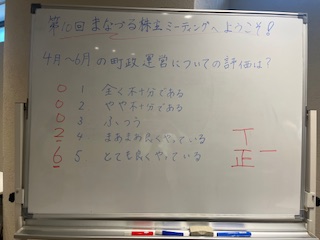 第10回 まなづる株主ミーティングへようこそ!
4月~6月の町政運営についての評価は?
0 1 全く不十分である
0 2 やや不十分である
0 3 ふつう
2 4 まあまあ良くやっている
6 5 とても良くやっている
丅
正一